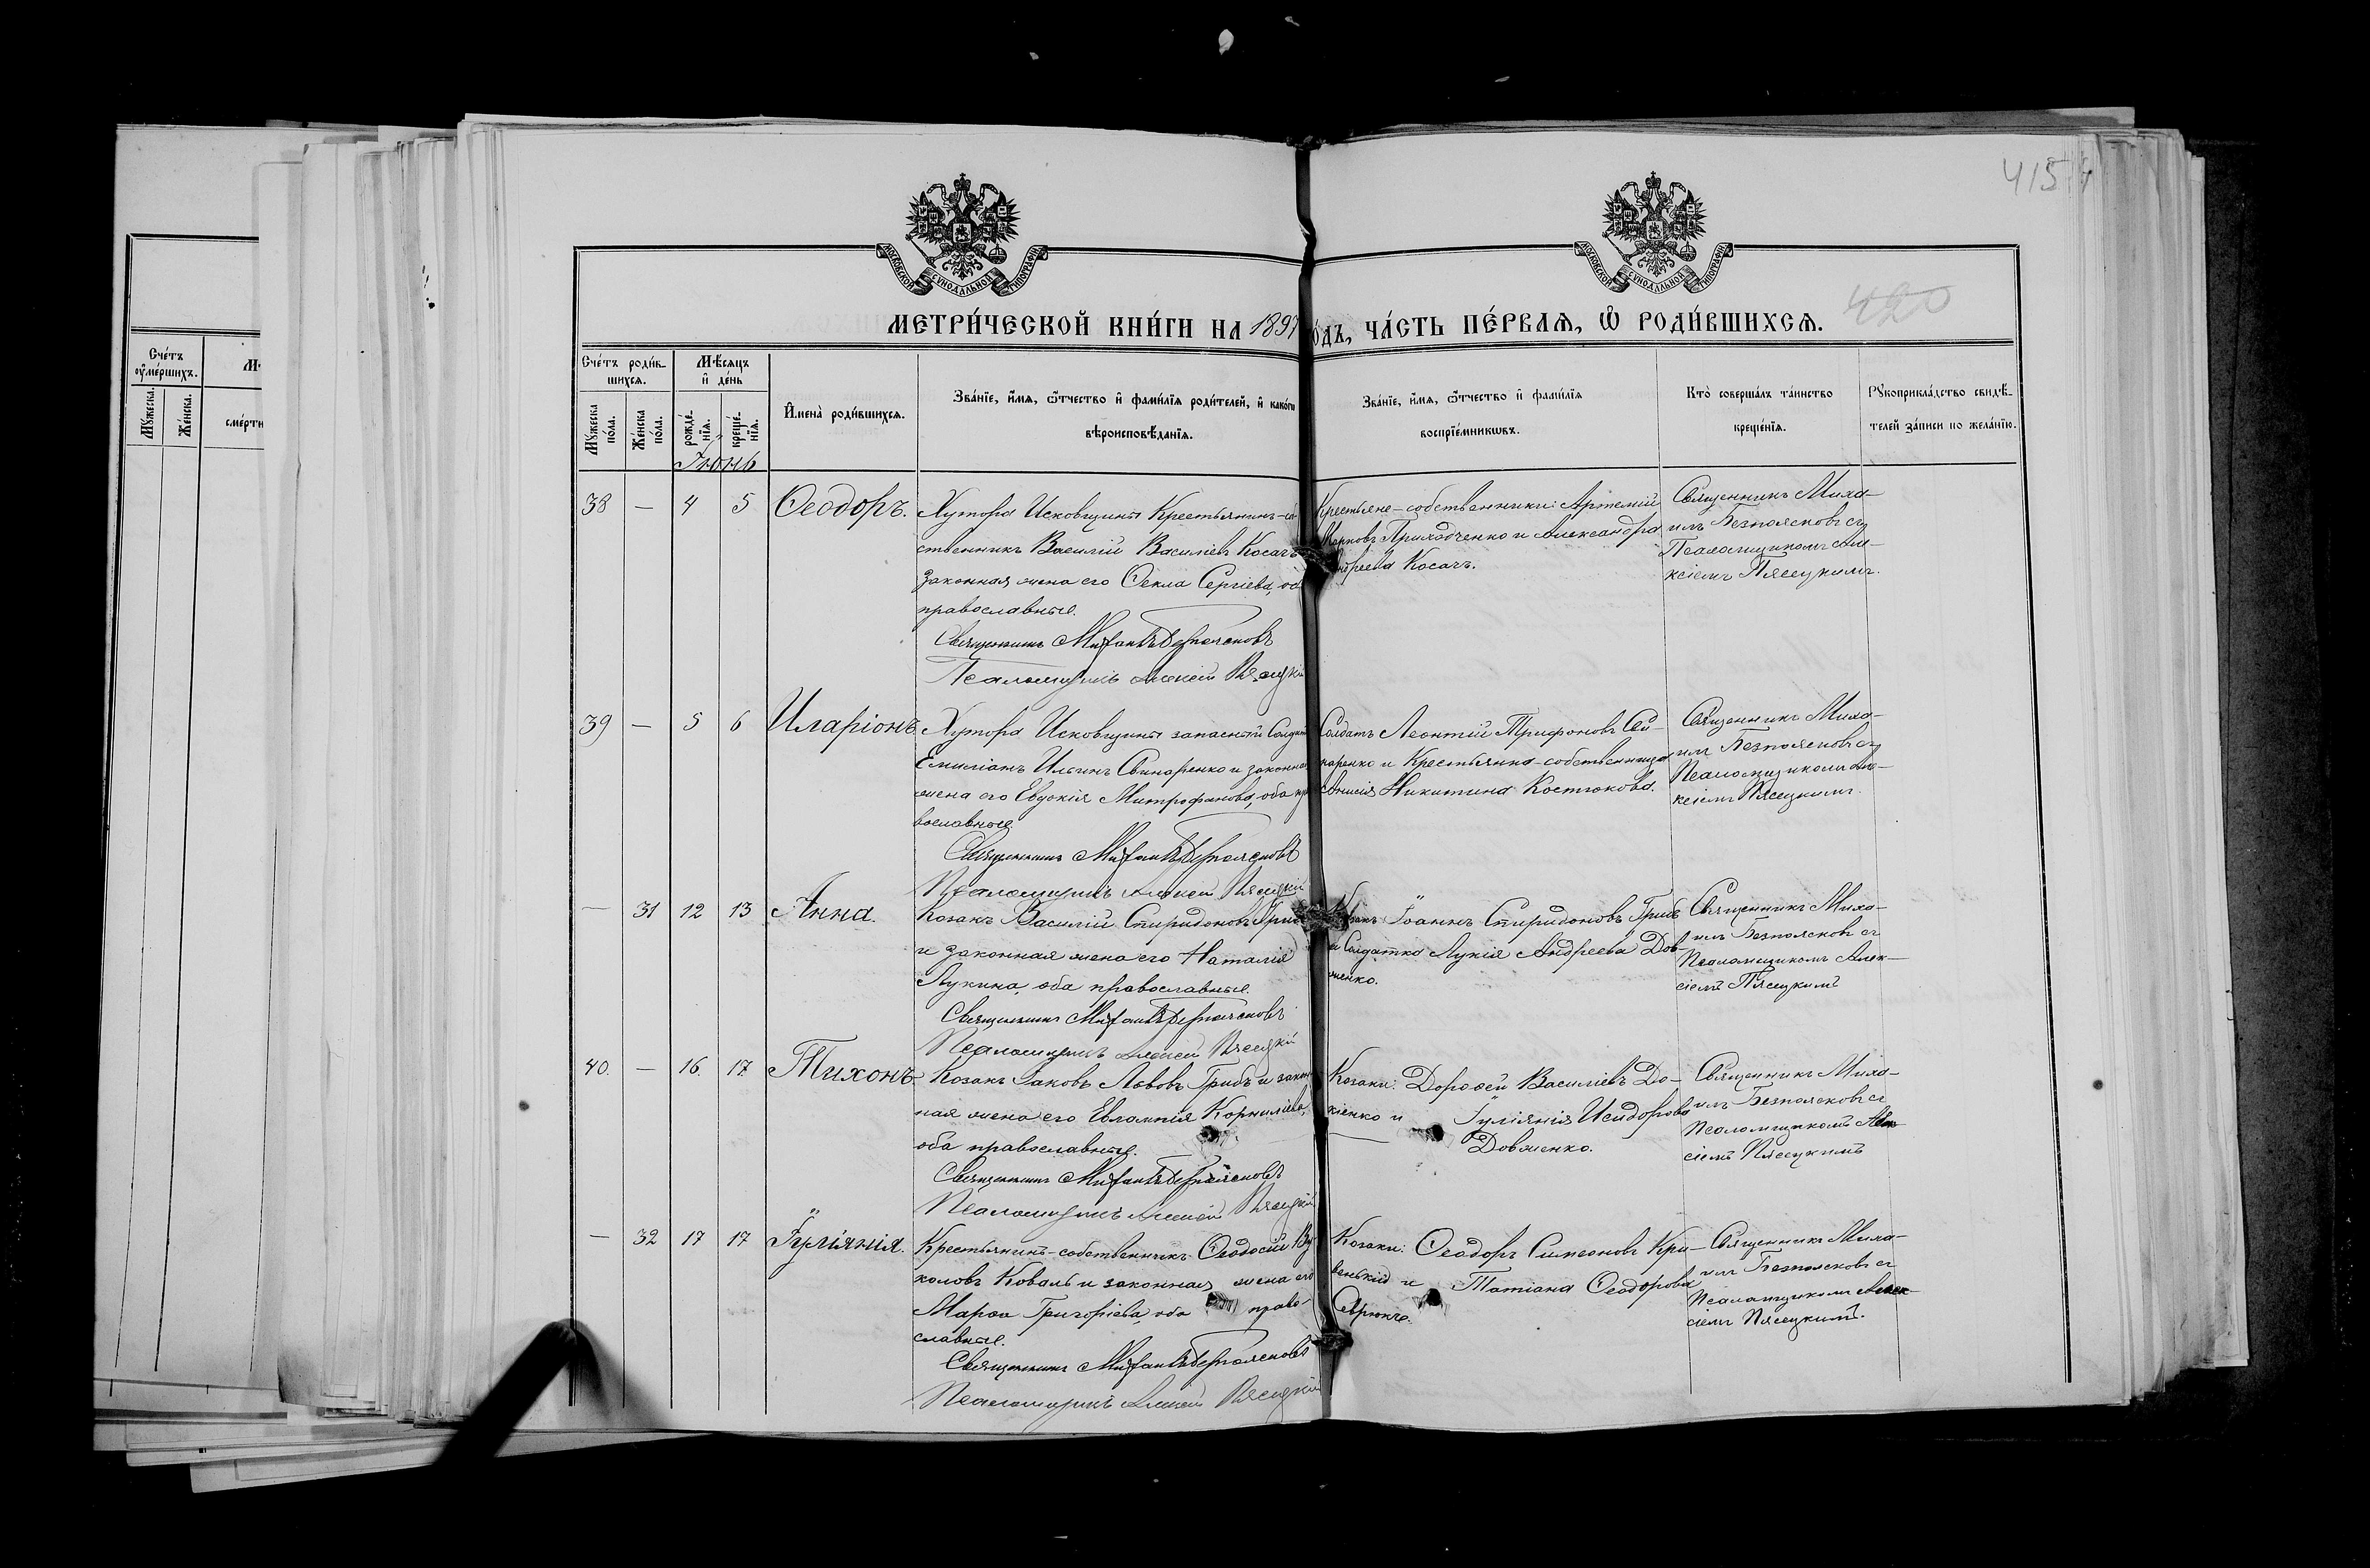 415
420
МОСКОВСКОЙ СУНОДАЛЬНОЙ ТИПОГРАФІИ
МОСКОВСКОЙ СУНОДАЛЬНОЙ ТИПОГРАФІИ
МЕТРИ́ЧЕСКОЙ КНИ́ГИ НА 1897
ОДЪ, ЧА́СТЬ ПЕ́РВАѦ, Ѡ РОДИ́ВШИХСѦ.
Сче́тъ
оумéршихъ.
Мꙋ́жеска.
Же́нска.
сме́рти
Сче́тъ роди́в-
шихсѧ.
Мꙋ́жеска по́ла.
Же́нска по́ла.
Мѣ́сѧцъ
и҆ де́нь
рожде́-
нїѧ.
креще́-
нїѧ.
Іюнь
И҆мена̀ роди́вшихсѧ.
Зва́нїе, и҆́мѧ, ѻ҆́тчество и҆ фами́лїѧ роди́телей, и҆ како́гѡ
вѣроисповѣ́данїѧ.
Зва́нїе, и҆́мѧ, ѻ҆́тчество и҆ фами́лїѧ
воспрїе́мникѡвъ.
Кто̀ соверша́лъ та́инство
креще́нїѧ.
Рꙋкоприкла́дство свидѣ́-
телей за́писи по жела́нїю.
38 — 4 5 Ѳеодоръ.
Хутора Исковщины Крестьянинъ-со
ственникъ Василій Василіевъ Косачъ
законная жена его Ѳекла Сергіева, об
православные.
Священникъ Михаилъ Безпоясковъ
Псаломщикъ Алексей Пясецкій
Крестьяне-собственники: Артемій
Приходченко и Александра
Андреева Косачъ.
Священникъ Миха-
илъ Безпоясковъ съ
Псаломщикомъ Але-
ксіемъ Пясецкимъ.
39 — 5 6 Иларіонъ.
Хутора Исковщины запасный Солдатъ
Емиліанъ Ильинъ Свинаренко и законная
жена его Евдокія Митрофанова, оба пра
вославные.
Священникъ Михаилъ Безпоясковъ
Псаломщикъ Алексей Пясецкій
Солдатъ Леонтій Трифоновъ Сви-
наренко и Крестьянка-собственница
Анисія Никитина Костюкова.
Священникъ Миха-
илъ Безпоясковъ съ
Псаломщикомъ Але-
ксіемъ Пясецкимъ.
— 31 12 13 Анна.
Козакъ Василій Спиридоновъ Грибъ
и законная жена его Наталія
Лукина, оба православные.
Священникъ Михаилъ Безпоясковъ
Псаломщикъ Алексей Пясецкій
Козакъ Іоаннъ Спиридоновъ Грибъ
и Солдатка Лукія Андреева Дов-
женко.
Священникъ Миха-
илъ Безпоясковъ съ
Псаломщикомъ Алек-
сіемъ Пясецкимъ
40. — 16 17 Тихонъ.
Козакъ Іаковъ Львовъ Грибъ и закон
ная жена его Евлампія Корниліева,
оба православные.
Священникъ Михаилъ Безпоясковъ
Псаломщикъ Алексей Пясецкій
Козаки: Дороѳей Василіевъ До-
кіенко и Іуліянія Исидорова
Довженко.
Священникъ Миха-
илъ Безпоясковъ съ
Псаломщикомъ Алек-
сіемъ Пясецкимъ
— 32 17 17 Іуліянія.
Крестьянинъ-собственникъ Ѳеодосій Ву
коловъ Коваль и законная жена его
Марѳа Григоріева, оба право-
славные.
Священникъ Михаилъ Безпоясковъ
Псаломщикъ Алексей Пясецкій
Козаки: Ѳеодоръ Симеоновъ Кри-
венькій и Татіана Ѳеодорова
Священникъ Миха-
илъ Безпоясковъ съ
Псаломщикомъ Алек-
сіемъ Пясецкимъ.